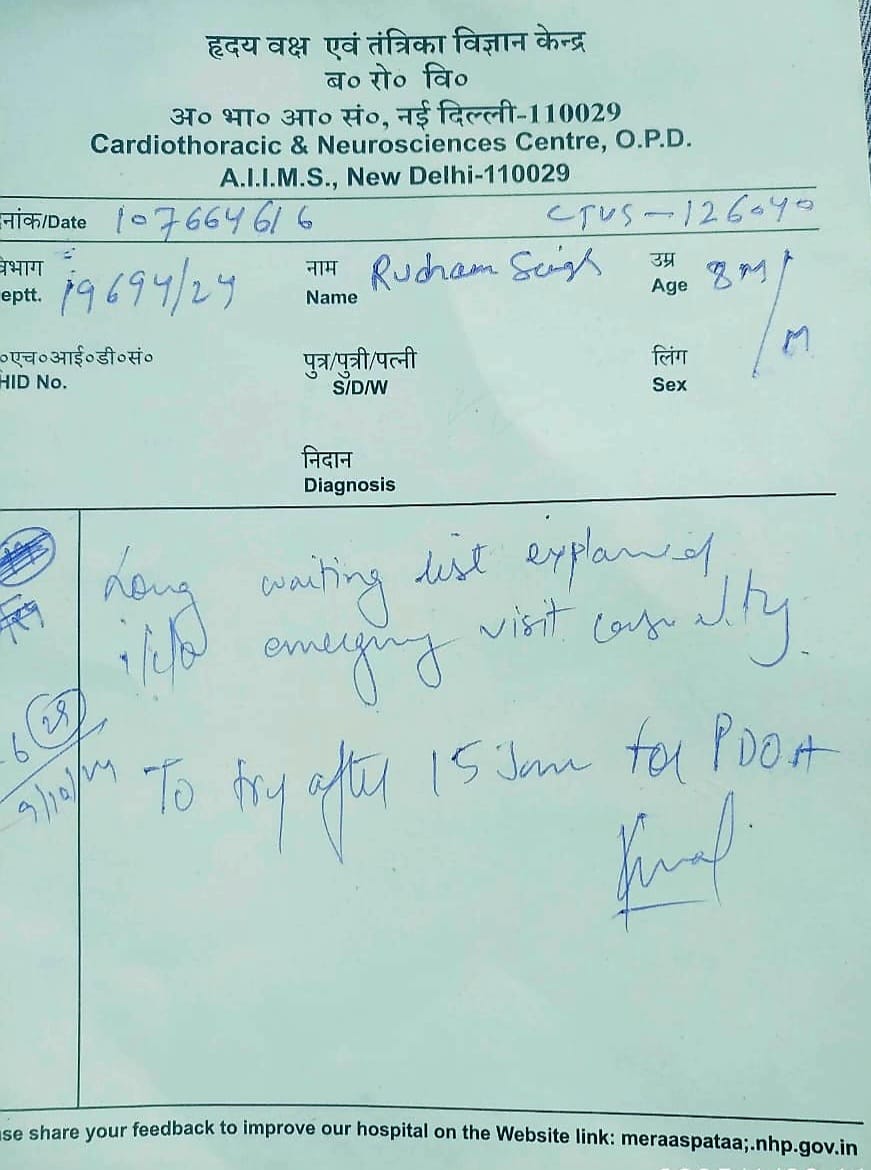 हृदय वक्ष एवं तंत्रिका विज्ञान केन्द्र
ब० रो० वि०
अ० भा० आ० सं०, नई दिल्ली-110029
Cardiothoracic & Neurosciences Centre, O.P.D.
A.I.I.M.S., New Delhi-110029
नांक/Date 107664616 CTVS-126040
वेभाग
eptt. 19694/24
नाम
Name Rudham Singh
उम्र
Age 8M/M
०एच०आई०डी०सं०
HID No.
पुत्र/पुत्री/पत्नी
S/D/W
लिंग
Sex
निदान
Diagnosis
Long waiting list explained
emergency visit casualty.
To try after 15 Jan for PDOA
9/12/24
se share your feedback to improve our hospital on the Website link: meraaspataa;.nhp.gov.in